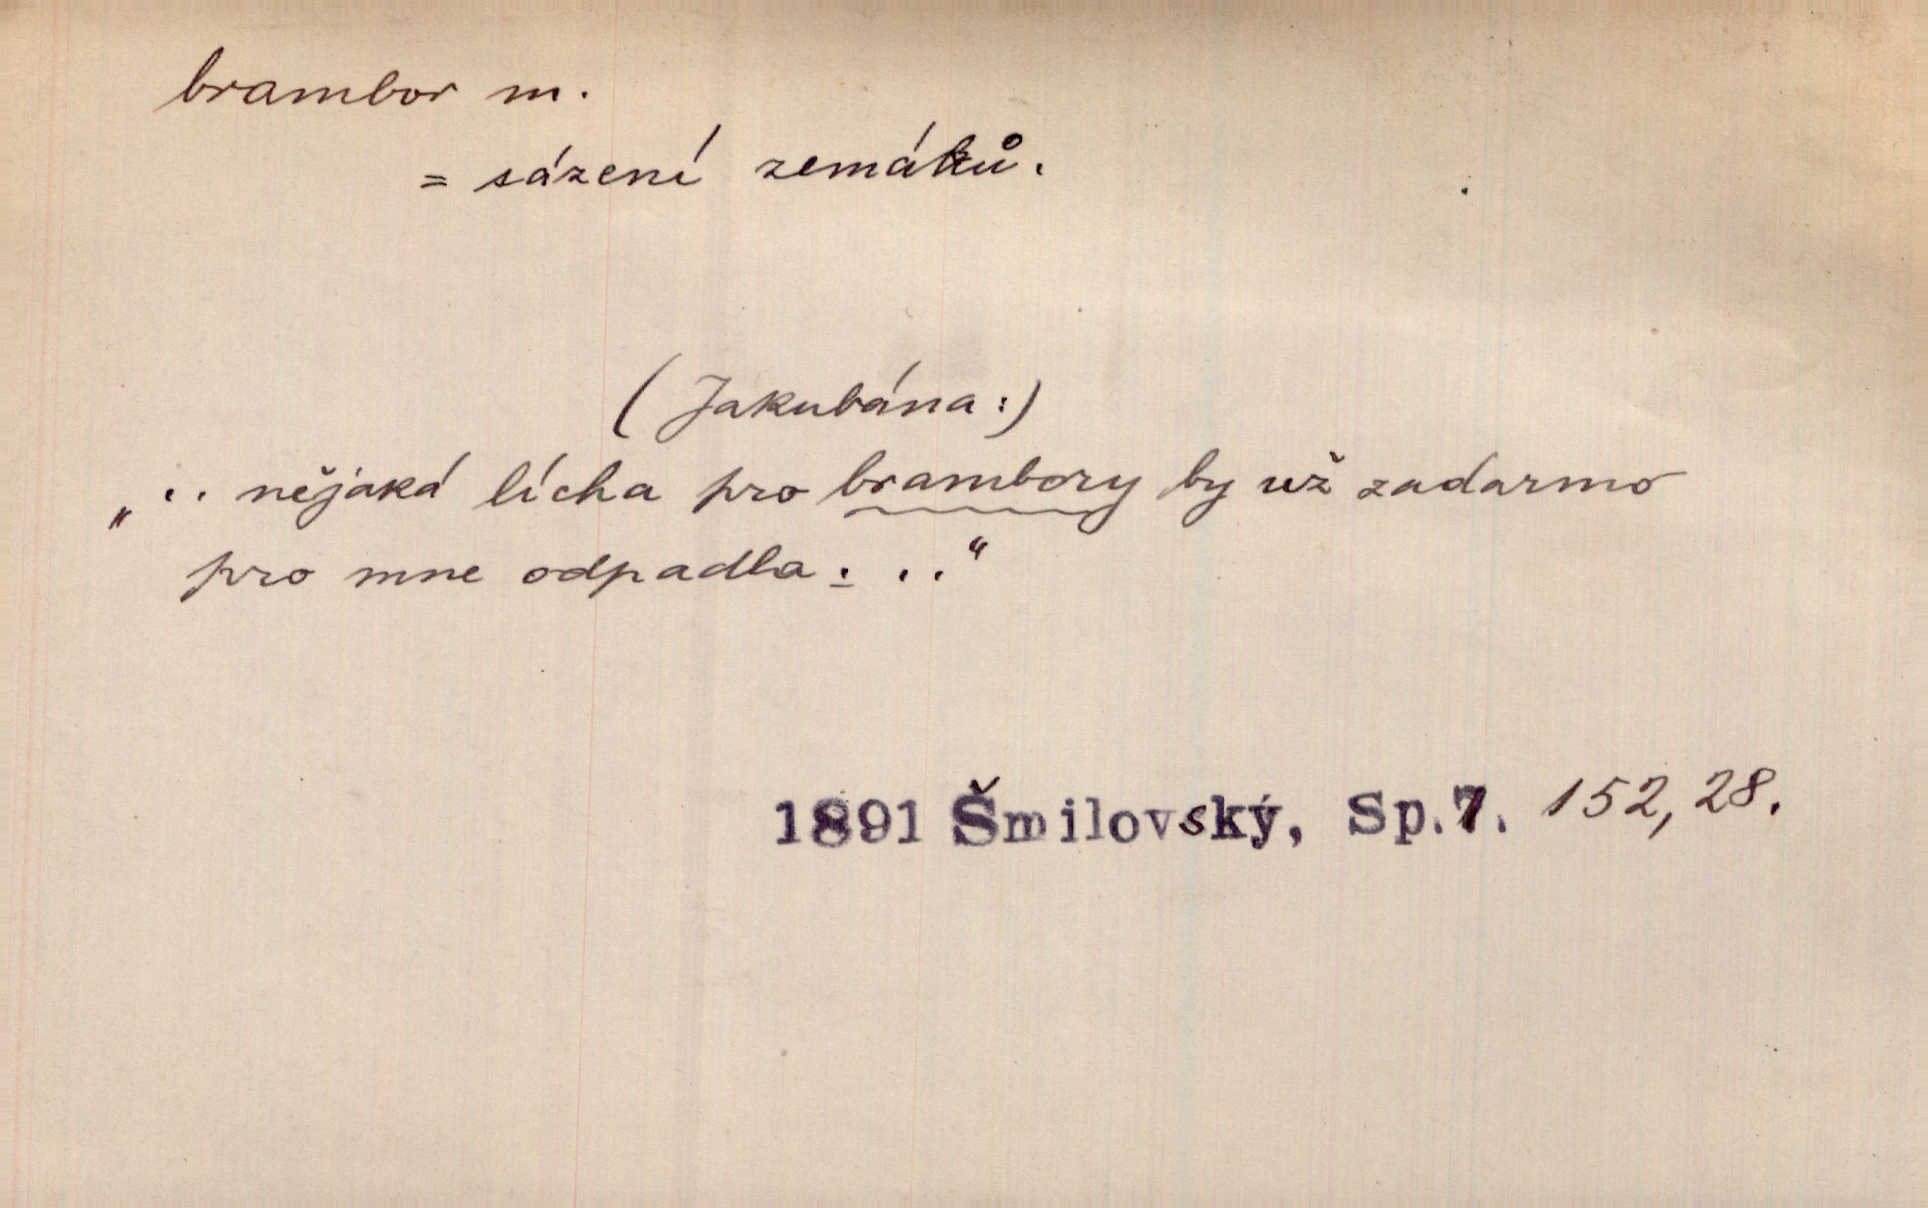 brambor m.
= sázení zemáků.
(Jakubána:)
„.. nějaká lícha pro brambory by už zadarmo
pro mne odpadla. ..“
1891 Šmilovský, Sp.7. 152, 28.